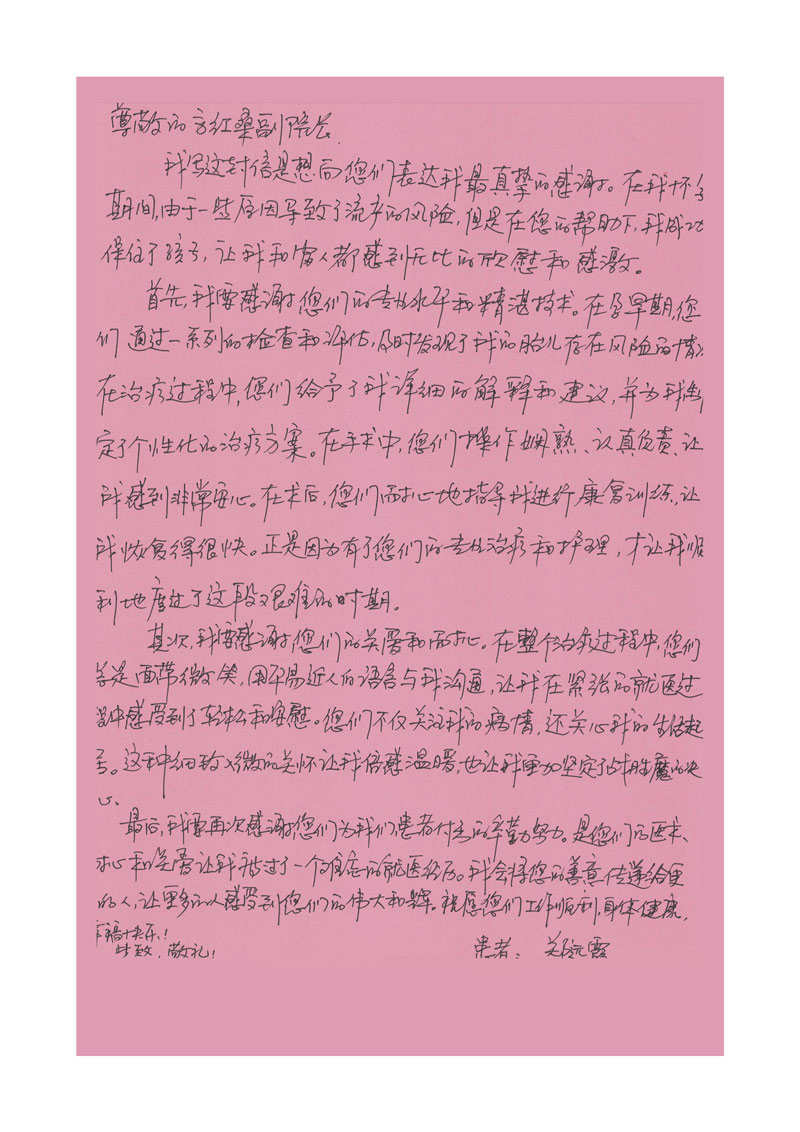 尊敬的方红桑副院长
我写这封信是想向您们表达我最真挚的感谢。在我怀孕
期间,由于一些原因导致了流产的风险,但是在您的帮助下,我成功
保住了孩子,让我和家人都感到无比的欣慰和感激。
首先,我要感谢您们的专业水平和精湛技术。在孕早期,您
们通过一系列的检查和评估,及时发现了我的胎儿存在风险的情
在治疗过程中,您们给予了我详细的解释和建议,并为我制
定了个性化的治疗方案。在手术中,您们操作娴熟、认真负责、让
我感到非常安心。在术后,您们耐心地指导我进行康复训练,让
我恢复得很快。正是因为有了您们的专业治疗和护理,才让我顺
利地度过了这段艰难的时期。
其次,我要感谢您们的关爱和耐心。在整个治疗过程中,您们
总是面带微笑,用平易近人的语言与我沟通,让我在紧张的就医过
程中感受到了轻松和安慰。您们不仅关注我的病情,还关心我的生活起
居。这种细致入微的关怀让我倍感温暖,也让我更加坚定了战胜魔的决
心、
最后,我要再次感谢您们为我们患者付出的辛勤努力。是您们的医术、
耐心和关爱让我度过了一个难忘的就医经历。我会将您的善意传递给更
的人,让更多的人感受到您们的伟大和辉。祝愿您们工作顺利,身体健康,
幸福快乐!
此致,敬礼! 患者: 关 霞